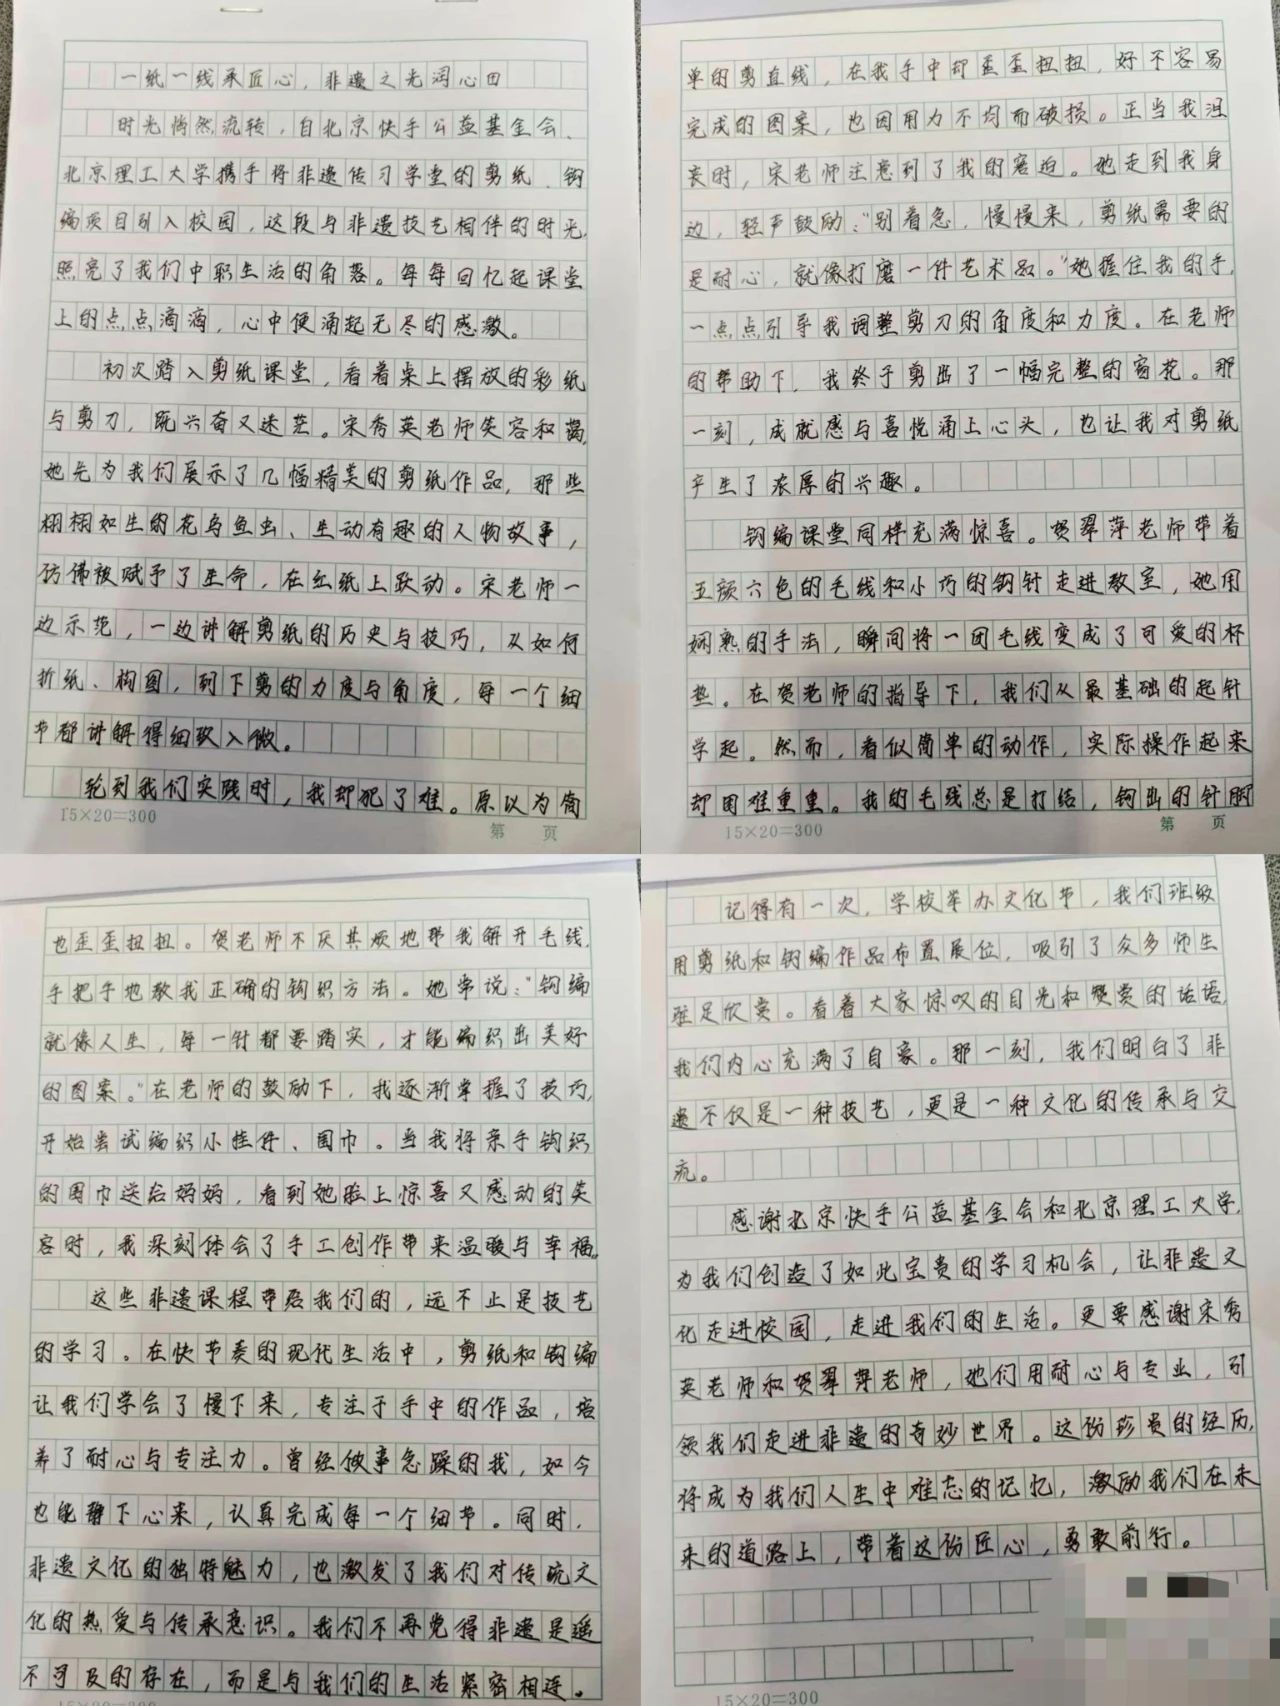 一纸一线承匠心，非遗之光润心田
时光悄然流转，自北京快手公益基金会、
北京理工大学携手将非遗传习学堂的剪纸、钩
编项目引入校园，这段与非遗技艺相伴的时光，
照亮了我们中职生活的角落。每每回忆起课堂
上的点点滴滴，心中便涌起无尽的感激。
初次踏入剪纸课堂，看着桌上摆放的彩纸
与剪刀，既兴奋又迷茫。宋秀英老师笑容和蔼，
她先为我们展示了几幅精美的剪纸作品，那些
栩栩如生的花鸟鱼虫、生动有趣的人物故事，
仿佛被赋予了生命，在红纸上跃动。宋老师一
边示范，一边讲解剪纸的历史与技巧，从如何
折纸、构图，到下剪的力度与角度，每一个细
节都讲解得细致入微。
轮到我们实践时，我却犯了难。原以为简
15×20=300
第 页
单的剪直线，在我手中却歪歪扭扭，好不容易
完成的图案，也因用力不均而破损。正当我沮
丧时，宋老师注意到了我的窘迫。她走到我身
边，轻声鼓励：“别着急，慢慢来，剪纸需要的
是耐心，就像打磨一件艺术品。”她握住我的手，
一点点引导我调整剪刀的角度和力度。在老师
的帮助下，我终于剪出了一幅完整的窗花。那
一刻，成就感与喜悦涌上心头，也让我对剪纸
产生了浓厚的兴趣。
钩编课堂同样充满惊喜。贺翠萍老师带着
五颜六色的毛线和小巧的钩针走进教室，她用
娴熟的手法，瞬间将一团毛线变成了可爱的杯
垫。在贺老师的指导下，我们从最基础的起针
学起。然而，看似简单的动作，实际操作起来
却困难重重。我的毛线总是打结，钩出的针脚
15×20=300
第 页
也歪歪扭扭。贺老师不厌其烦地帮我解开毛线，
手把手地教我正确的钩织方法。她常说：“钩编
就像人生，每一针都要踏实，才能编织出美好
的图案。”在老师的鼓励下，我逐渐掌握了技巧，
开始尝试编织小挂件、围巾。当我将亲手钩织
的围巾送给妈妈，看到她脸上惊喜又感动的笑
容时，我深刻体会了手工创作带来温暖与幸福。
这些非遗课程带给我们的，远不止是技艺
的学习。在快节奏的现代生活中，剪纸和钩编
让我们学会了慢下来，专注于手中的作品，培
养了耐心与专注力。曾经做事急躁的我，如今
也能静下心来，认真完成每一个细节。同时，
非遗文化的独特魅力，也激发了我们对传统文
化的热爱与传承意识。我们不再觉得非遗是遥
不可及的存在，而是与我们的生活紧密相连。
15×20=300
记得有一次，学校举办文化节，我们班级
用剪纸和钩编作品布置展位，吸引了众多师生
驻足欣赏。看着大家惊叹的目光和赞赏的话语，
我们内心充满了自豪。那一刻，我们明白了非
遗不仅是一种技艺，更是一种文化的传承与交
流。
感谢北京快手公益基金会和北京理工大学，
为我们创造了如此宝贵的学习机会，让非遗文
化走进校园，走进我们的生活。更要感谢宋秀
英老师和贺翠萍老师，她们用耐心与专业，引
领我们走进非遗的奇妙世界。这份珍贵的经历，
将成为我们人生中难忘的记忆，激励我们在未
来的道路上，带着这份匠心，勇敢前行。
15×20=300